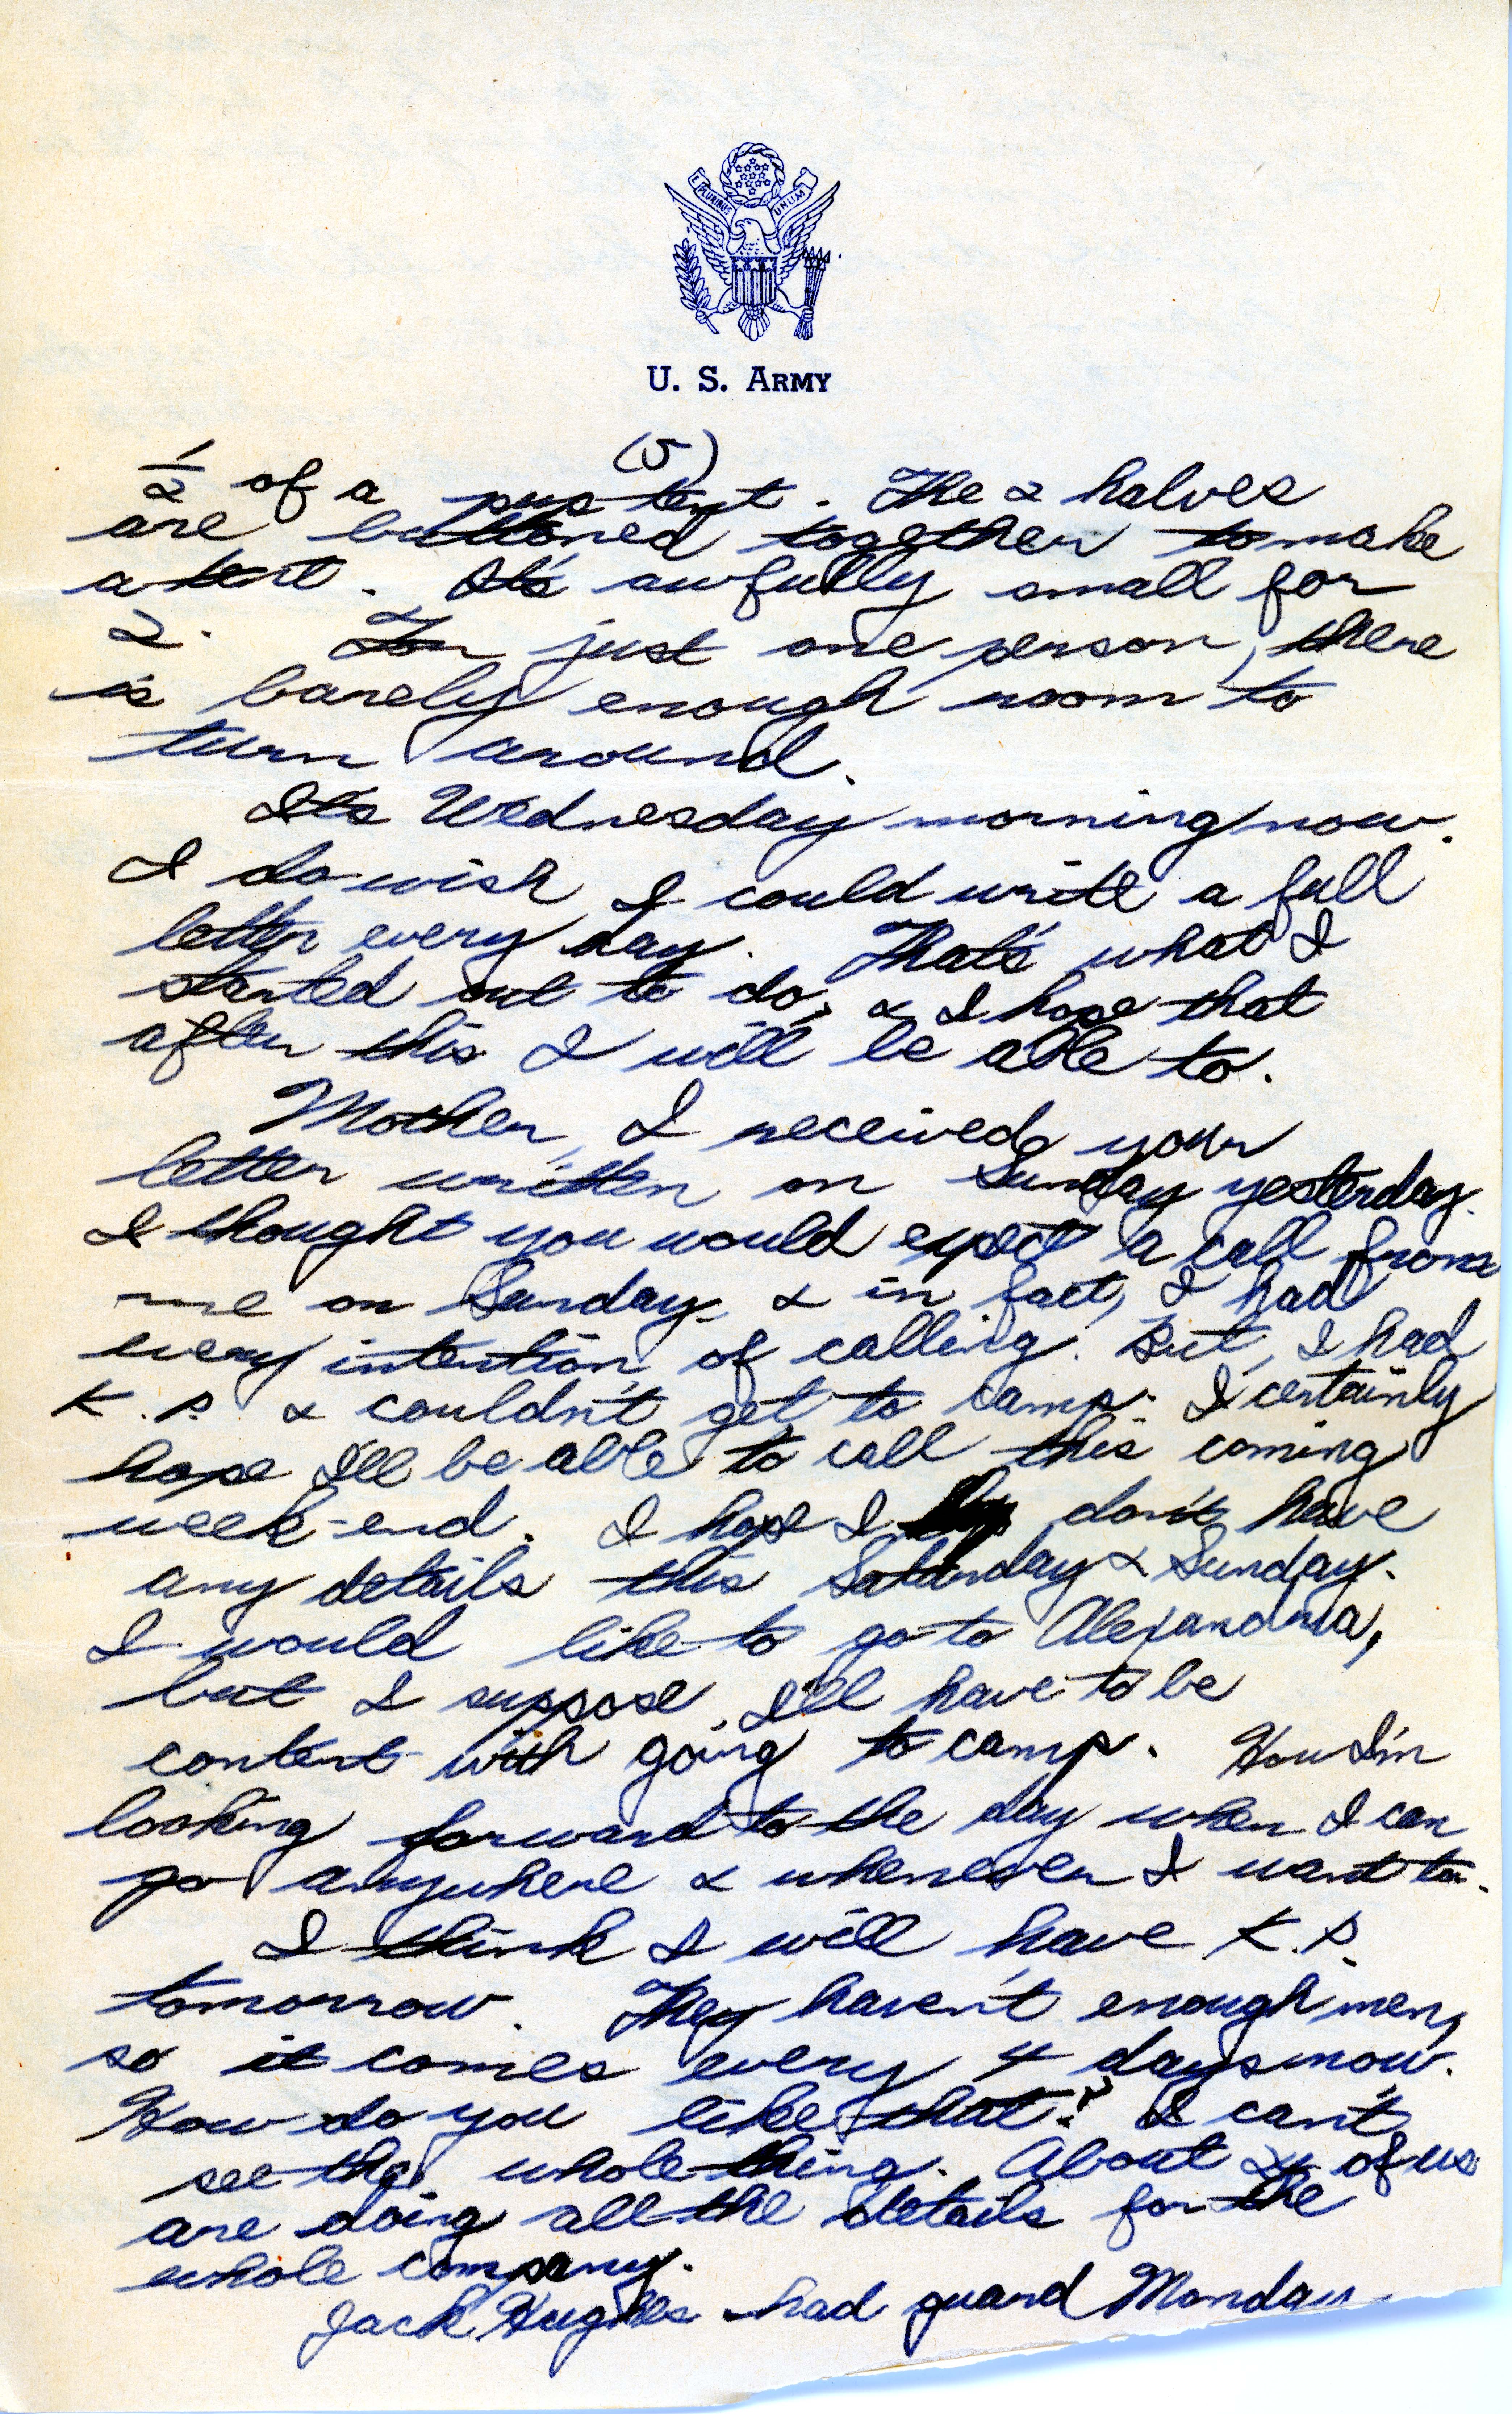 E PLURIBUS UNUM
U. S. ARMY
(5)
1/2 of a pup tent. The 2 halves
are buttoned together to make
a tent. It's awfully small for
2. For just one person, there
is barely enough room to
turn around.
It's Wednesday morning now.
I do wish I could write a full
letter every day. That's what I
started out to do, & I hope that
after this I will be able to.
Mother, I received your
letter written on Sunday yesterday.
I thought you would expect a call from
me on Sunday, & in fact, I had
every intention of calling. But, I had
K.P. & couldn't get to camp. I certainly
hope I'll be able to call this coming
week-end. I hope I don't have
any details this Saturday & Sunday.
I would like to go to Alexandria,
but I suppose I'll have to be
content with going to camp. How I'm
looking forward to the day when I can
go anywhere & whenever I want to.
I think I will have K.P.
tomorrow. They haven't enough men,
so it comes every 4 days now.
How do you like that? I can't
see the whole thing. About 24 of us
are doing all the details for the
whole company.
Jack Hughes had guard Monday